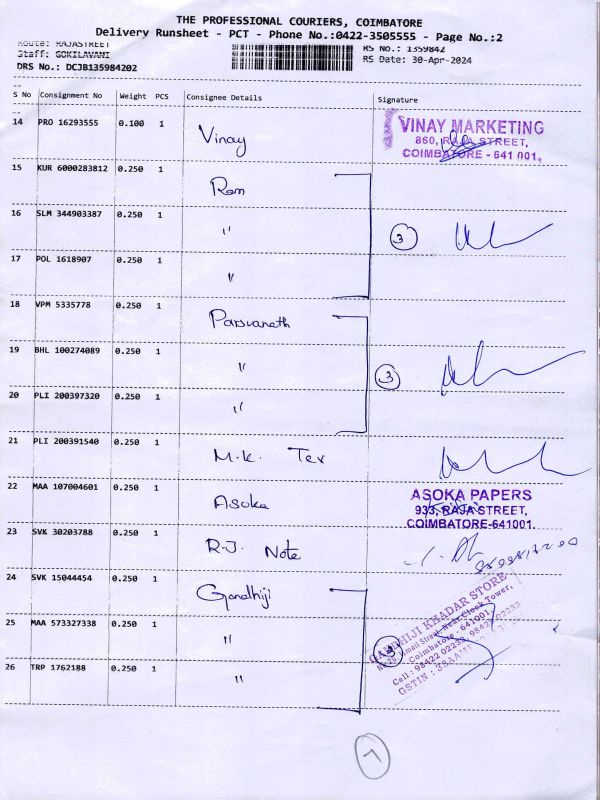 THE PROFESSIONAL COURIERS, COIMBATORE
Delivery Runsheet - PCT - Phone No.:0422-3505555 - Page No.:2
Route: RAJASTREET
RS No.: 1359842
Staff: GOKILAVANI
RS Date: 30-Apr-2024
DRS No.: DCJB135984202
S No Consignment No Weight PCS Consignee Details Signature
14 PRO 16293555 0.100 1 Vinay
VINAY MARKETING
860, RAJA STREET,
COIMBATORE - 641 001.
15 KUR 6000283812 0.250 1 Ram
16 SLM 344903387 0.250 1 " 3
17 POL 1618907 0.250 1 "
18 VPM 5335778 0.250 1 Parsvanath
19 BHL 100274089 0.250 1 " 3
20 PLI 200397320 0.250 1 "
21 PLI 200391540 0.250 1 M.K. Tex
22 MAA 107004601 0.250 1 Asoka
ASOKA PAPERS
933, RAJA STREET,
COIMBATORE-641001.
23 SVK 30203788 0.250 1 R.J. Note
24 SVK 15044454 0.250 1 Gandhiji
GANDHIJI KHADAR STORE
Near Clock Tower,
Coimbatore - 641001
Cell : 98422 02233, 98422 02233
GSTIN :
25 MAA 573327338 0.250 1 " 3
26 TRP 1762188 0.250 1 "
7